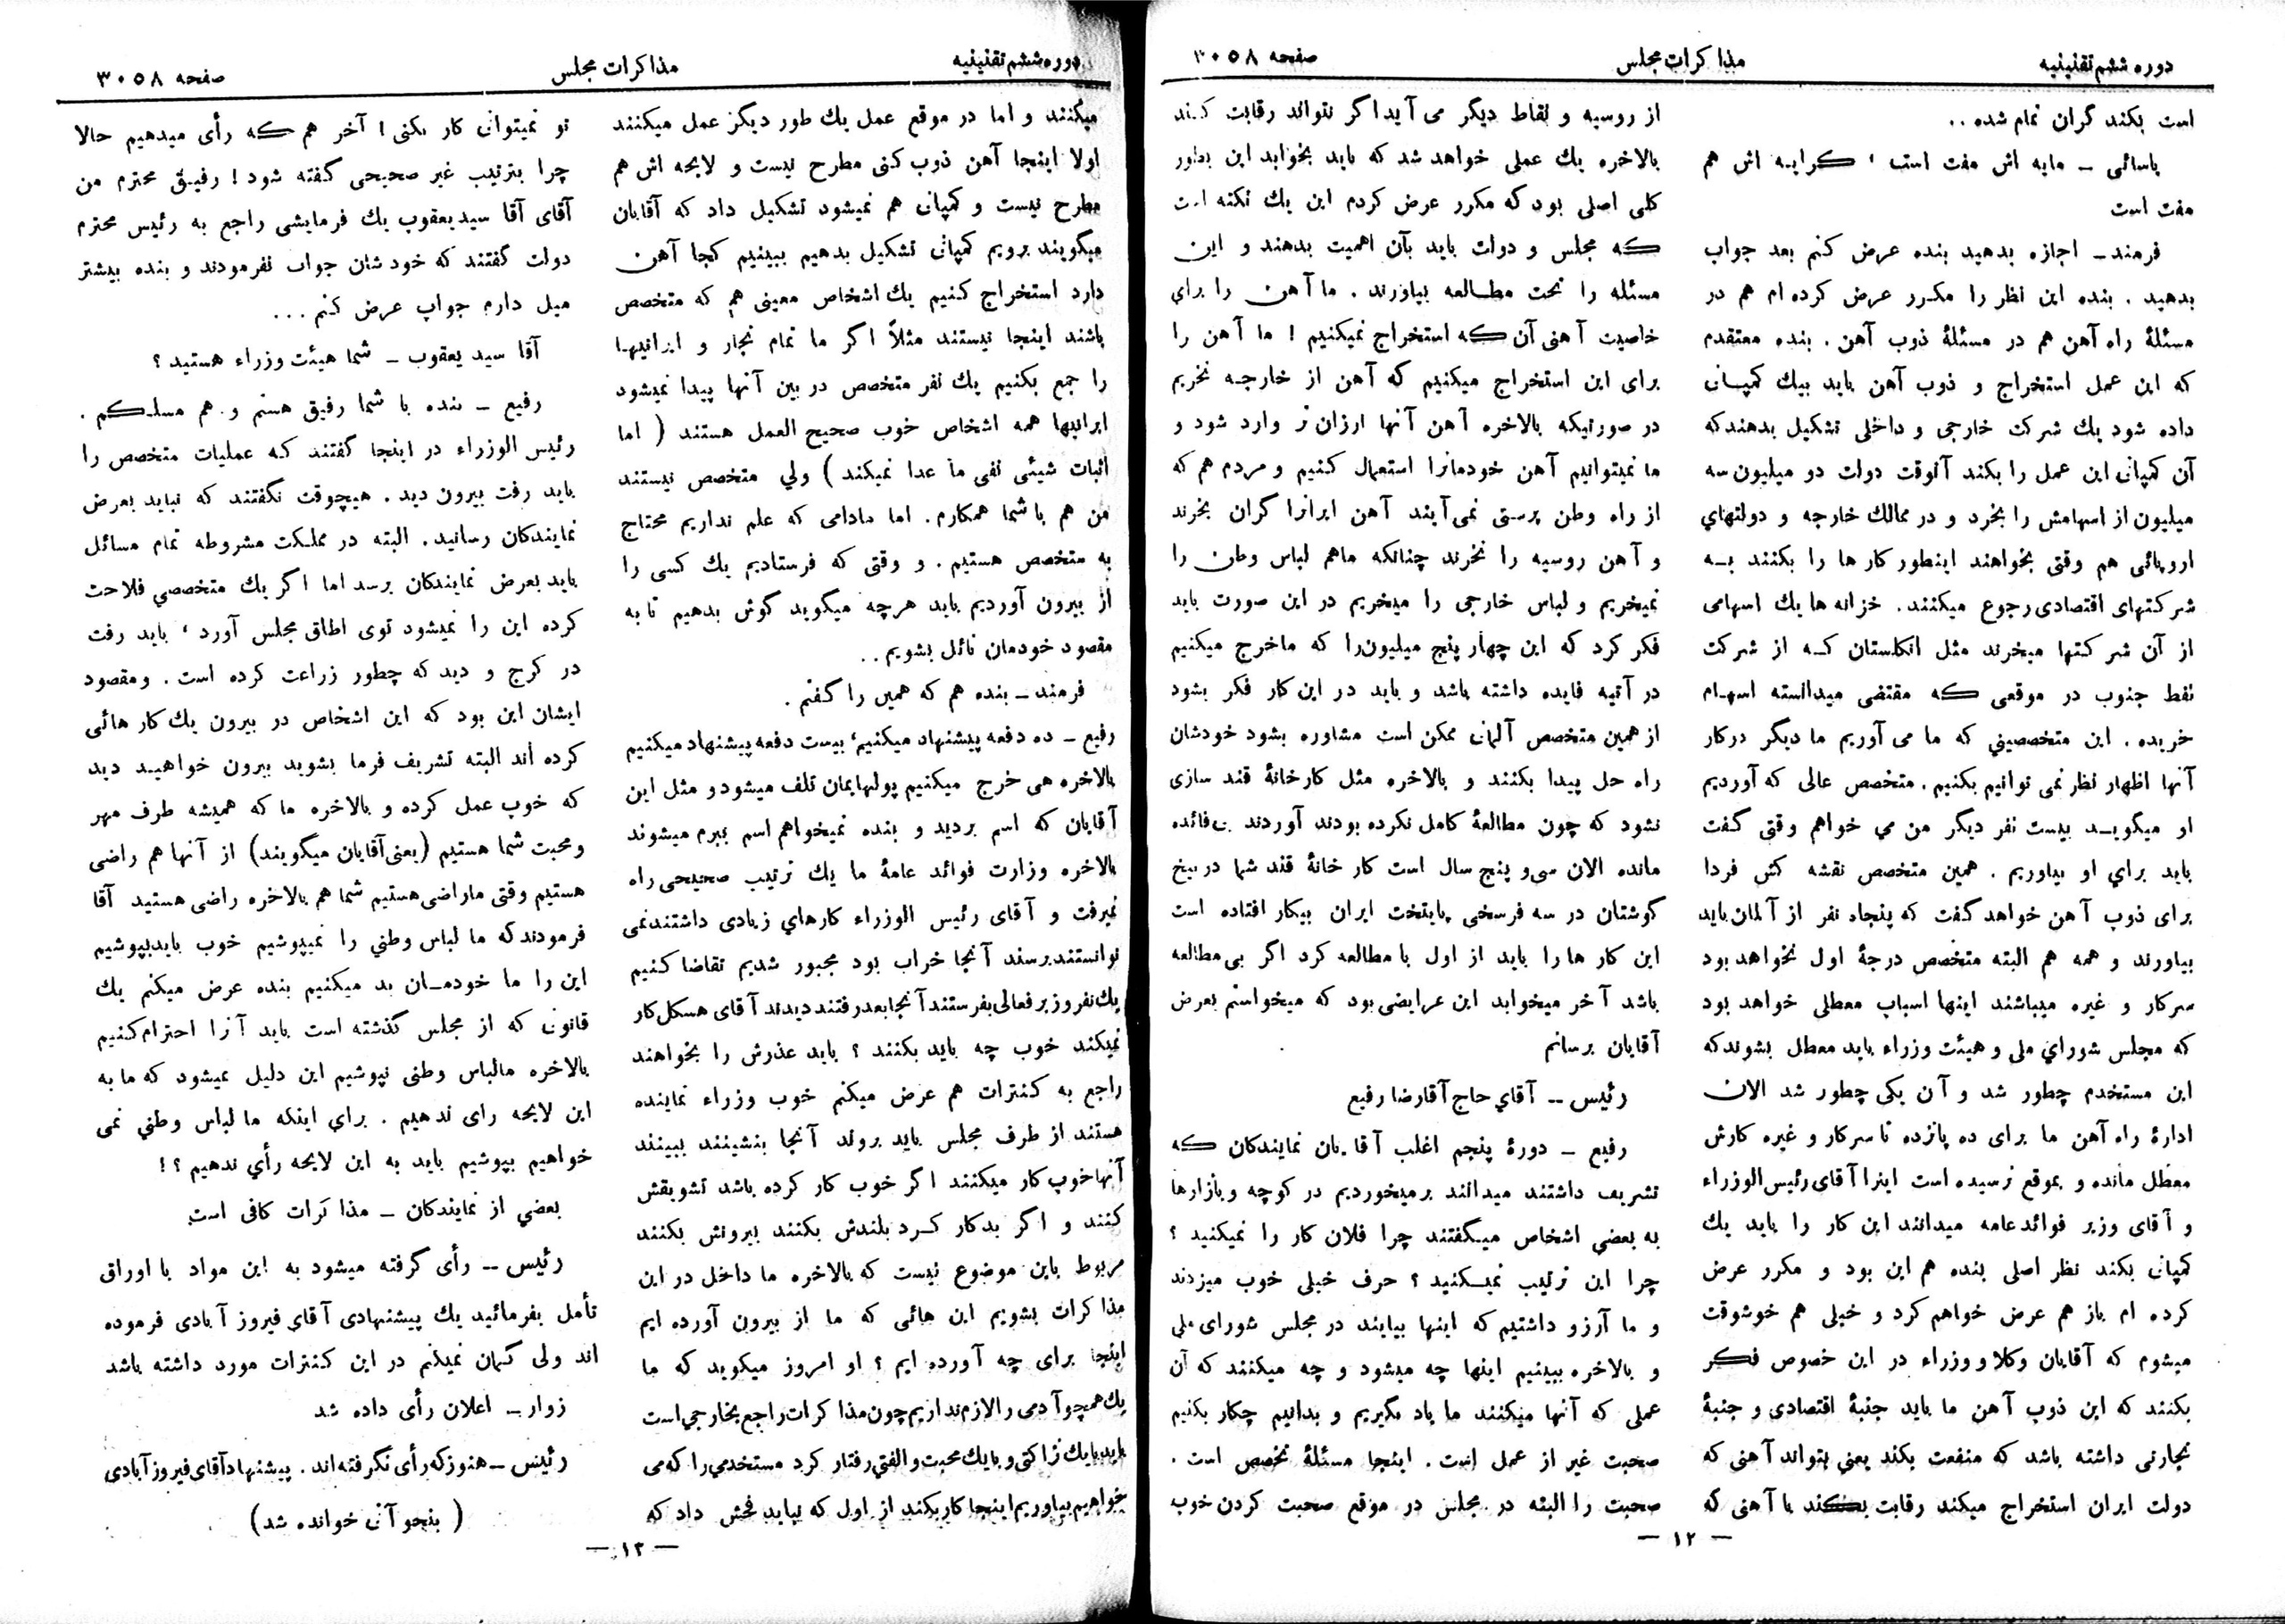 دوره ششم تقنینیه
مذاکرات مجلس
صفحه ۳۰۵۸
است بکند گران تمام شده . .
یاسائی ـ مایه اش مفت است ، کرایه اش هم
مفت است
فرمند ـ اجازه بدهید بنده عرض کنم بعد جواب
بدهید . بنده این نظر را مکرر عرض کرده ام هم در
مسئلهٔ راه آهن هم در مسئلهٔ ذوب آهن . بنده معتقدم
که این عمل استخراج و ذوب آهن باید بیك کمپانی
داده شود یك شرکت خارجی و داخلی تشکیل بدهند که
آن کمپانی این عمل را بکند آنوقت دولت دو میلیون سه
میلیون از اسهامش را بخرد و در ممالك خارجه و دولتهای
اروپائی هم وقتی بخواهند اینطور کار ها را بکنند بـه
شرکتهای اقتصادی رجوع میکنند . خزانه ها یك اسهامی
از آن شرکتها میخرند مثل انگلستان کـه از شرکت
نفط جنوب در موقعی که مقتضی میدانسته اسهـام
خریده . این متخصصینی که ما می آوریم ما دیگر درکار
آنها اظهار نظر نمی توانیم بکنیم . متخصص عالی که آوردیم
او میگویـد بیست نفر دیگر من می خواهم وقتی گفت
باید برای او بیاوریم . همین متخصص نقشه کش فردا
برای ذوب آهن خواهد گفت که پنجاه نفر از آلمان باید
بیاورند و همه هم البته متخصص درجهٔ اول نخواهد بود
سرکار و غیره میباشند اینها اسباب معطلی خواهد بود
که مجلس شورای ملی و هیئت وزراء باید معطل بشوند که
این مستخدم چطور شد و آن یکی چطور شد الان
ادارهٔ راه آهن ما برای ده پانزده تا سرکار و غیره کارش
معطل مانده و بموقع نرسیده است اینرا آقای رئیس الوزراء
و آقای وزیر فوائد عامه میدانند این کار را باید یك
کمپانی بکند نظر اصلی بنده هم این بود و مکرر عرض
کرده ام باز هم عرض خواهم کرد و خیلی هم خوشوقت
میشوم که آقایان وکلا و وزراء در این خصوص فکر
بکنند که این ذوب آهن ما باید جنبهٔ اقتصادی و جنبهٔ
تجارتی داشته باشد که منفعت بکند یعنی بتواند آهنی که
دولت ایران استخراج میکند رقابت بکند با آهنی که
از روسیه و نقاط دیگر می آید اگر نتواند رقابت کند
بالاخره یك عملی خواهد شد که باید بخوابد این بطور
کلی اصلی بود که مکرر عرض کردم این یك نکته است
که مجلس و دولت باید بآن اهمیت بدهند و این
مسئله را تحت مطـالعه بیاورند . ما آهن را برای
خاصیت آهنی آن که استخراج نمیکنیم ! ما آهن را
برای این استخراج میکنیم که آهن از خارجـه نخریم
در صورتیکه بالاخره آهن آنها ارزان تر وارد شود و
ما نمیتوانیم آهن خودمانرا استعمال کنیم و مردم هم که
از راه وطن پرستی نمی آیند آهن ایرانرا گران بخرند
و آهن روسیه را نخرند چنانکه ماهم لباس وطن را
نمیخریم و لباس خارجی را میخریم در این صورت باید
فکر کرد که این چهار پنج میلیون را که ما خرج میکنیم
در آتیه فایده داشته باشد و باید در این کار فکر بشود
از همین متخصص آلمان ممکن است مشاوره بشود خودشان
راه حل پیدا بکنند و بالاخره مثل کارخانهٔ قند سازی
نشود که چون مطالعهٔ کامل نکرده بودند آوردند بی فائده
مانده الان سی و پنج سال است کار خانهٔ قند شما در بیخ
گوشتان در سه فرسخی پایتخت ایران بیکار افتاده است
این کار ها را باید از اول با مطالعه کرد اگر بی مطالعه
باشد آخر میخوابد این عرایضی بود که میخواستم بعرض
آقایان برسانم
رئیس ـ آقای حاج آقا رضا رفیع
رفیع ـ دورهٔ پنجم اغلب آقایان نمایندگان که
تشریف داشتند میدانند برمیخوردیم در کوچه و بازارها
به بعضی اشخاص میگفتند چرا فلان کار را نمیکنید ؟
چرا این ترتیب نمیـکنید ؟ حرف خیلی خوب میزدند
و ما آرزو داشتیم که اینها بیایند در مجلس شورای ملی
و بالاخره ببینیم اینها چه میشود و چه میکنند که آن
عملی که آنها میکنند ما یاد بگیریم و بدانیم چکار بکنیم
صحبت غیر از عمل است . اینجا مسئلهٔ تخصص است .
صحبت را البته در مجلس در موقع صحبت کردن خوب
— ۱۲ —
دوره ششم تقنینیه
مذاکرات مجلس
صفحه ۳۰۵۸
میکنند و اما در موقع عمل یك طور دیگر عمل میکنند
اولا اینجا آهن ذوب کنی مطرح نیست و لایحه اش هم
مطرح نیست و کمپانی هم نمیشود تشکیل داد که آقایان
میگویند برویم کمپانی تشکیل بدهیم ببینیم کجا آهن
دارد استخراج کنیم یك اشخاص معینی هم که متخصص
باشند اینجا نیستند مثلاً اگر ما تمام تجار و ایرانیها
را جمع بکنیم یك نفر متخصص در بین آنها پیدا نمیشود
ایرانیها همه اشخاص خوب صحیح العمل هستند ( اما
اثبات شیئی نفی ما عدا نمیکند ) ولی متخصص نیستند
من هم با شما همکارم . اما مادامی که علم نداریم محتاج
به متخصص هستیم . و وقتی که فرستادیم یك کسی را
از بیرون آوردیم باید هرچه میگوید گوش بدهیم تا به
مقصود خودمان نائل بشویم . .
فرمند ـ بنده هم که همین را گفتم .
رفیع ـ ده دفعه پیشنهاد میکنیم ، بیست دفعه پیشنهاد میکنیم
بالاخره هی خرج میکنیم پولهایمان تلف میشود و مثل این
آقایان که اسم بردید و بنده نمیخواهم اسم ببرم میشوند
بالاخره وزارت فوائد عامهٔ ما یك ترتیب صحیحی راه
نمیرفت و آقای رئیس الوزراء کارهای زیادی داشتند نمی
توانستند برسند آنجا خراب بود مجبور شدیم تقاضا کنیم
یك نفر وزیر فعالی بفرستند آنجا بعد رفتند دیدند آقای هسکل کار
نمیکند خوب چه باید بکنند ؟ باید عذرش را بخواهند
راجع به کنترات هم عرض میکنم خوب وزراء نماینده
هستند از طرف مجلس باید بروند آنجا بنشینند ببینند
آنها خوب کار میکنند اگر خوب کار کرده باشد تشویقش
کنند و اگر بد کار کـرد بلندش بکنند بیرونش بکنند
مربوط باین موضوع نیست که بالاخره ما داخل در این
مذاکرات بشویم این هائی که ما از بیرون آورده ایم
اینجا برای چه آورده ایم ؟ او امروز میگوید که ما
یك همچو آدمی را لازم نداریم چون مذاکرات راجع بخارجی است
باید با یك نزاکتی و با یك محبت و الفتی رفتار کرد مستخدمی را که می
خواهیم بیاوریم اینجا کار بکند از اول که نباید فحش داد که
تو نمیتوانی کار بکنی ! آخر هم که رأی میدهیم حالا
چرا بترتیب غیر صحیحی گفته شود ! رفیـق محترم من
آقای آقا سید یعقوب یك فرمایشی راجع به رئیس محترم
دولت گفتند که خودشان جواب نفرمودند و بنده بیشتر
میل دارم جواب عرض کنم . . .
آقا سید یعقوب ـ شما هیئت وزراء هستید ؟
رفیع ـ بنده با شما رفیق هستم و هم مسلـكم .
رئیس الوزراء در اینجا گفتند که عملیات متخصص را
باید رفت بیرون دید . هیچوقت نگفتند که نباید بعرض
نمایندگان رسانید . البته در مملکت مشروطه تمام مسائل
باید بعرض نمایندگان برسد اما اگر یك متخصصی فلاحت
کرده این را نمیشود توی اطاق مجلس آورد ، باید رفت
در کرج و دید که چطور زراعت کرده است . و مقصود
ایشان این بود که این اشخاص در بیرون یك کار هائی
کرده اند البته تشریف فرما بشوید بیرون خواهیـد دید
که خوب عمل کرده و بالاخره ما که همیشه طرف مهر
و محبت شما هستیم (یعنی آقایان میگویند) از آنها هم راضی
هستیم وقتی ما راضی هستیم شما هم بالاخره راضی هستید آقا
فرمودند که ما لباس وطنی را نمیپوشیم خوب باید بپوشیم
این را ما خودمـان بد میکنیم بنده عرض میکنم یك
قانونی که از مجلس گذشته است باید آنرا احترام کنیم
بالاخره ما لباس وطنی نپوشیم این دلیل نمیشود که ما به
این لایحه رای ندهیم . برای اینکه ما لباس وطنی نمی
خواهیم بپوشیم باید به این لایحه رأی ندهیم ؟ !
بعضی از نمایندگان ـ مذاکرات کافی است
رئیس ـ رأی گرفته میشود به این مواد با اوراق
تأمل بفرمائید یك پیشنهادی آقای فیروز آبادی فرموده
اند ولی گمان نمیکنم در این کنترات مورد داشته باشد
زوار ـ اعلان رأی داده شد
رئیس ـ هنوز که رأی نگرفته اند . پیشنهاد آقای فیروزآبادی
( بنحو آتی خوانده شد)
— ۱۳ —